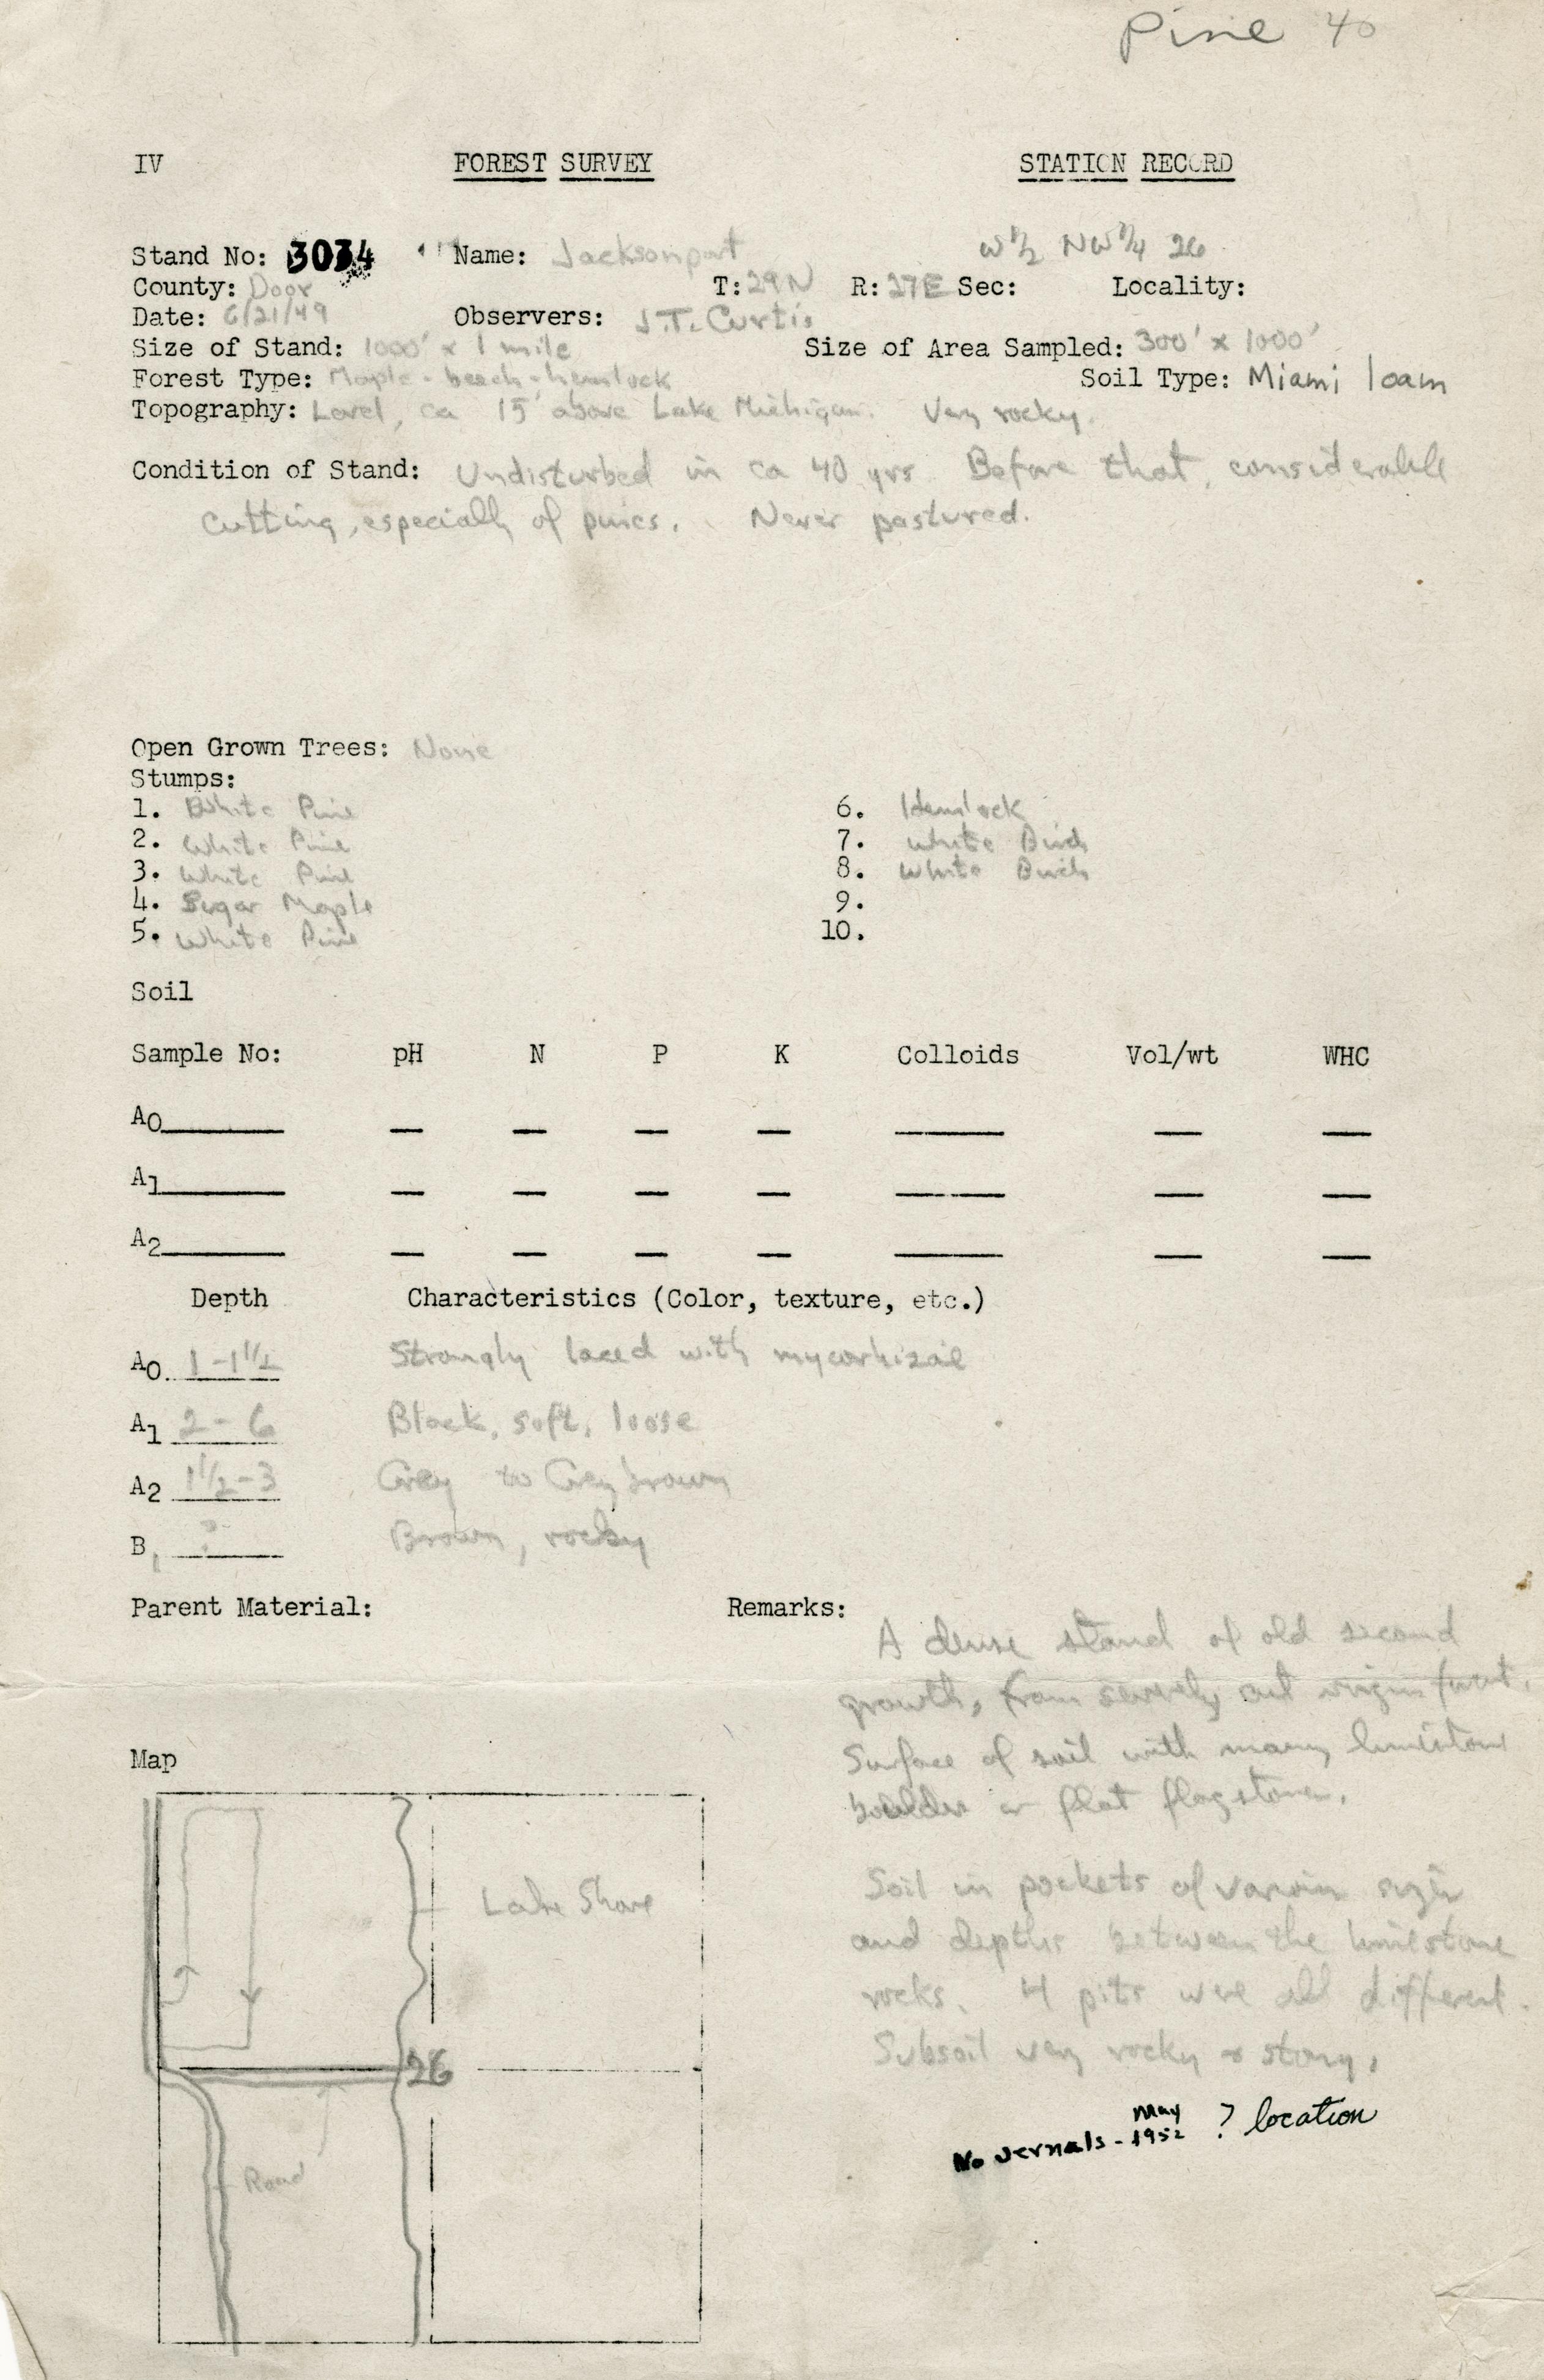 Pine 40
IV FOREST SURVEY STATION RECORD
Stand No: 3034 Name: Jacksonport W 1/2 NW 1/4 26
County: Door T: 29N R: 27E Sec: Locality:
Date: 6/21/49 Observers: J.T. Curtis
Size of Stand: 1000' x 1 mile Size of Area Sampled: 300' x 1000'
Forest Type: Maple - beech - hemlock Soil Type: Miami loam
Topography: Level, ca 15' above Lake Michigan. Very rocky.
Condition of Stand: Undisturbed in ca 40 yrs Before that, considerable
cutting, especially of pines. Never pastured.
Open Grown Trees: None
Stumps:
1. White Pine 6. Hemlock
2. White Pine 7. White Birch
3. White Pine 8. White Birch
4. Sugar Maple 9.
5. White Pine 10.
Soil
Sample No: pH N P K Colloids Vol/wt WHC
A0
A1
A2
Depth Characteristics (Color, texture, etc.)
A0 1-1 1/2 Strongly laced with mycorhizae
A1 2 - 6 Black, soft, loose
A2 1 1/2-3 Grey to Grey brown
B1 ? Brown, rocky
Parent Material: Remarks:
A dense stand of old second
growth, from severely cut virgin forest.
Surface of soil with many limestone
boulders or flat flagstones.
Map
Lake Shore
Soil in pockets of various sizes
and depths between the limestone
rocks. 4 pits were all different.
Subsoil very rocky & stony.
26
No vernals - May 1952 ? location
Road